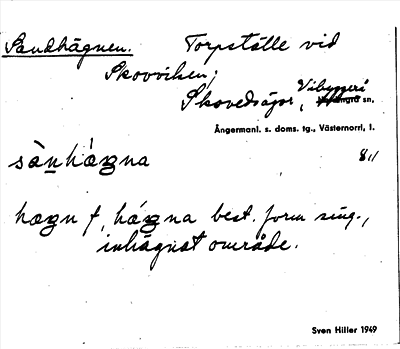 Sandhägnen. Torpställe vid
Skovviken,
Skovedsågor, Vibyggerå
sn,
Ångermanl. s. doms. tg., Västernorrl, l.
sànhægna 8/11
hægn f, hægna best. form sing.,
inhägnat område.
Sven Hiller 1949